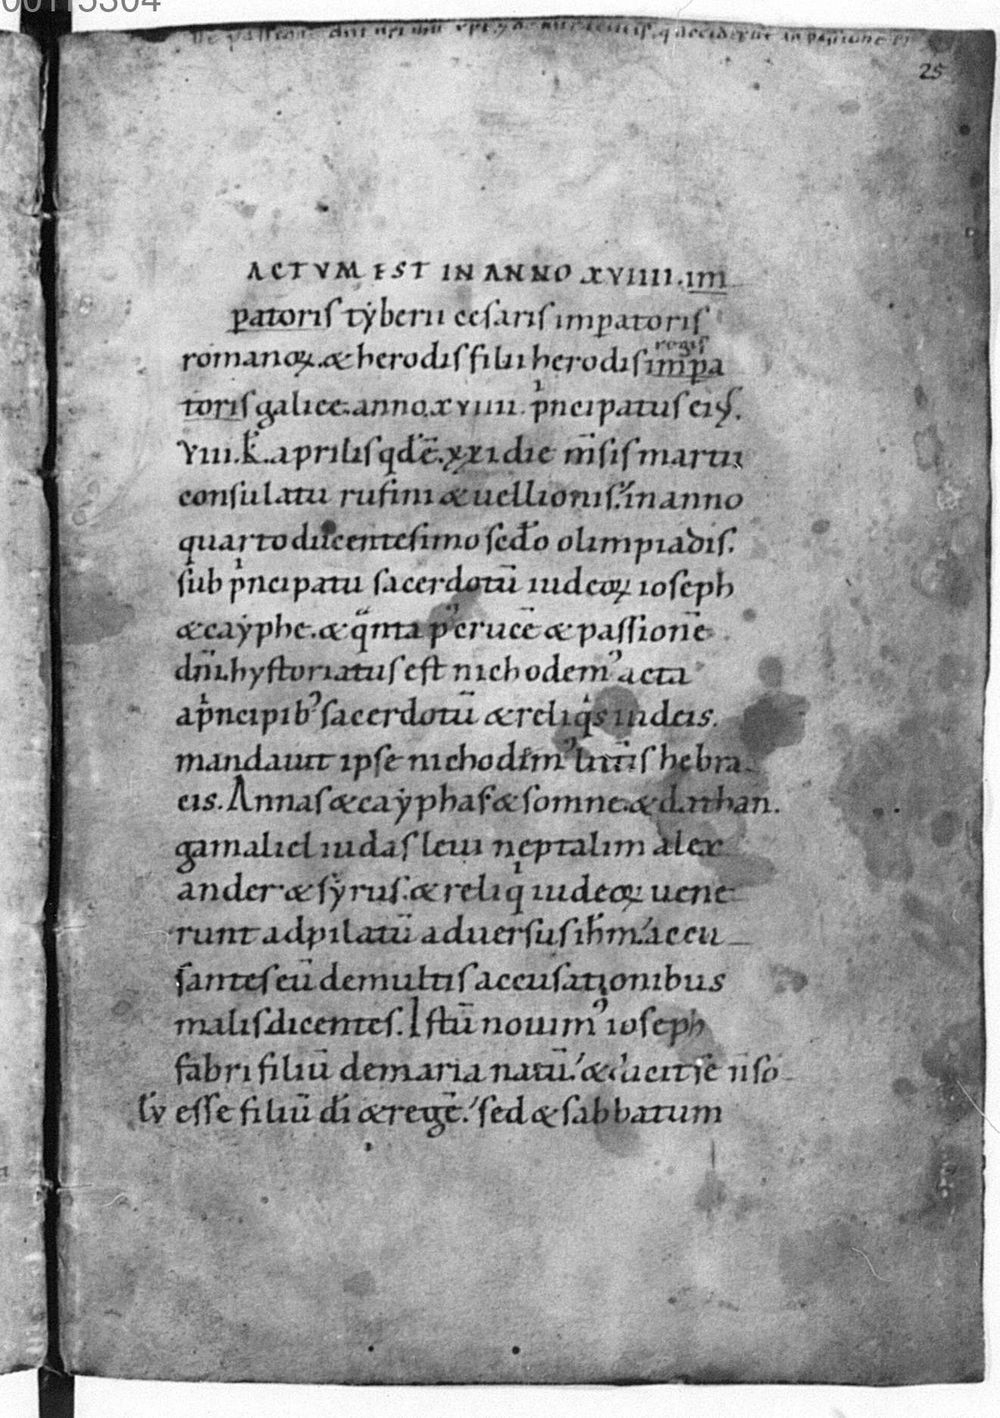 00115304
25
ACTVM EST IN ANNO XVIIII. im
patoris tẏberii cesaris imꝑatoris
romanoꝝ. & herodis filii herodis imꝑa
regis
toris galiee. anno. xviiii. pͥncipatus eiꝰ.
VIII. k̄. aprilis qd ē. xxi die m̄sis martii
consulatu rufini & uellionis. in anno
quarto ducentesimo sedo olimpiadis.
sub pͥncipatu sacerdotū iudeoꝝ ioseph
& caẏphe. & qͣnta pꝰ crucē & passionē
dn̄i. hystoriatus est nichodemꝰ acta
a pͥncipibꝰ sacerdotū & reliqͥs iudeis.
mandauit ipse nichodemꝰ litt̄is hebra
eis. Annas & caẏphas & somne. & dathan.
gamaliel iudas leui neptalim alex
ander & sẏrus. & reliqͥ iudeoꝝ uene
runt ad pilatū aduersus ih̄m. accu
santes eū de multis accusationibus
malis dicentes. Istū nouimꝰ ioseph
fabri filiū de maria natū. & dicit se n̄ so
lv̄ esse filiū dī & regē. sed & sabbatum